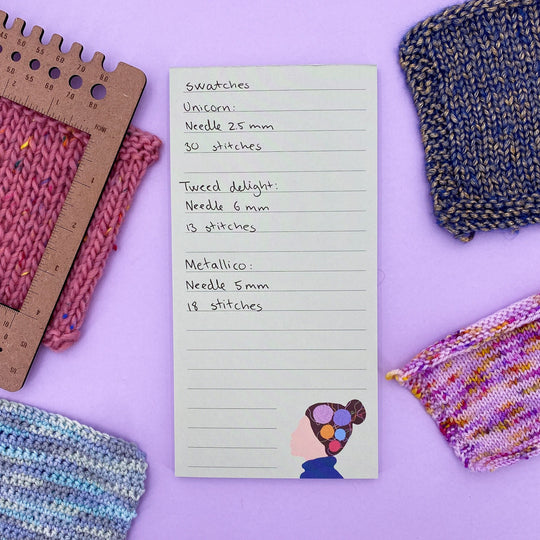 swatches
Unicorn:
Needle 2.5 mm
30 stitches
Tweed delight:
Needle 6 mm
13 stitches
Metallico:
Needle 5 mm
18 stitches